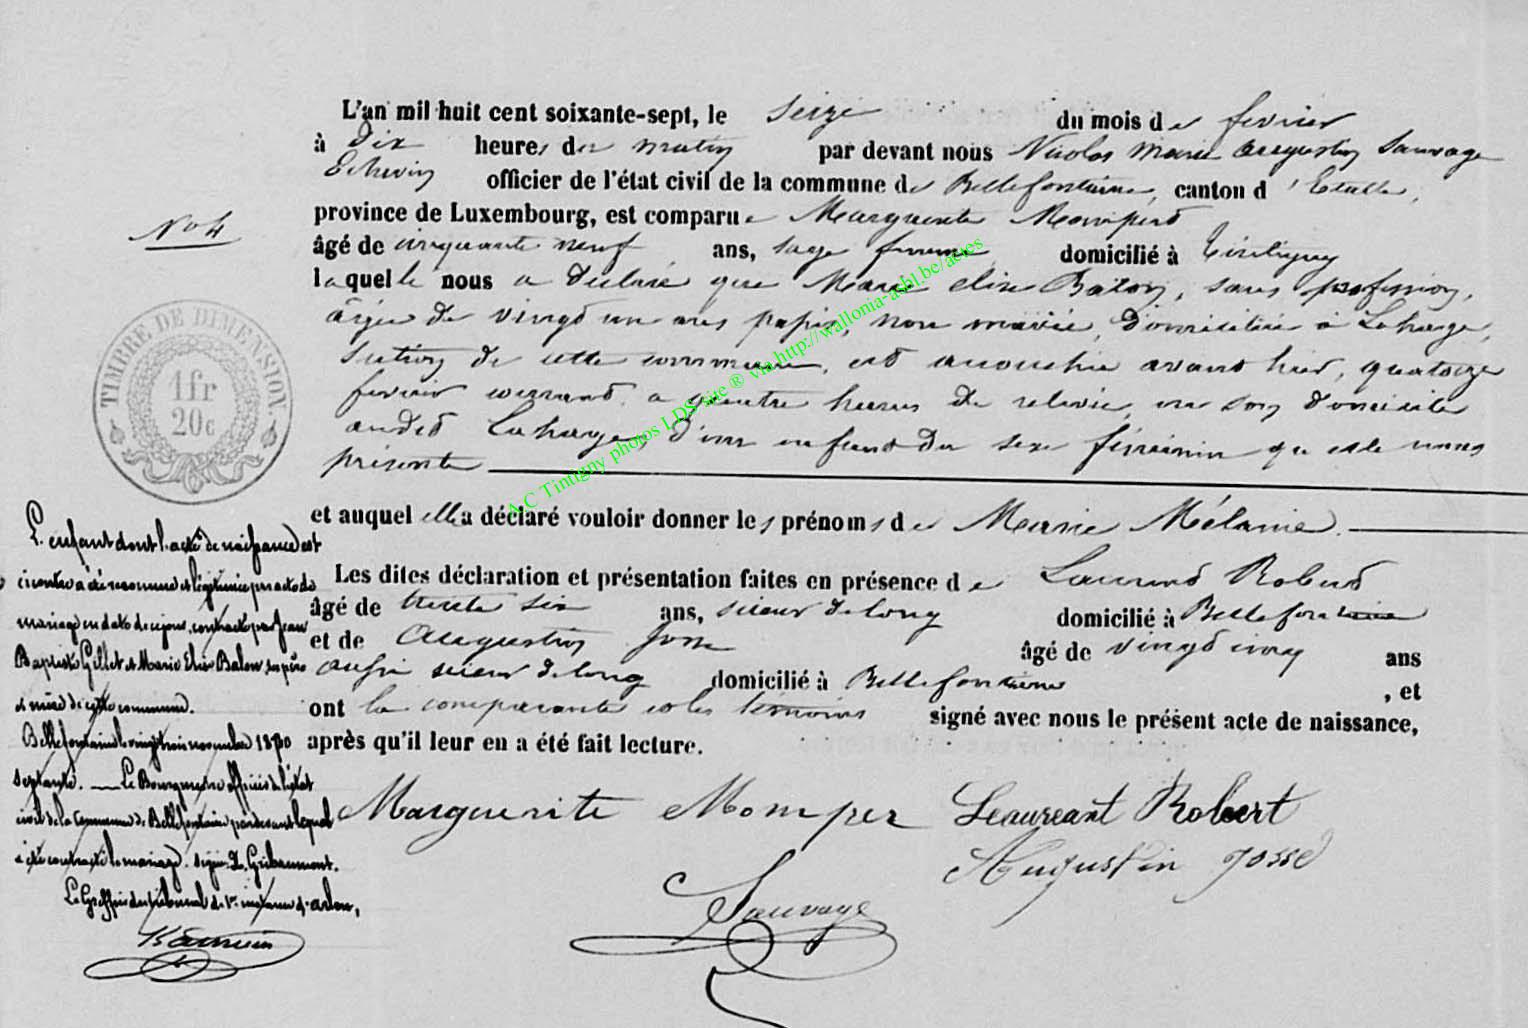 L'an mil huit cent soixante-sept, le seize du mois de fevrier
à Dix heures du matin par devant nous Nicolas Marie Augustin Sauvage
Echevin officier de l'état civil de la commune de Bellefontaine, canton d'Etalle,
province de Luxembourg, est comparue Marguerite Mompert
N° 4
âgé de cinquante neuf ans, sage femme domicilié à Tintigny
laquelle nous a déclaré que Marie elise Balon, sans profession,
âgée de vingt un ans passés, non mariée, domiciliée à Lahage,
section de cette commune, est accouchée avant hier, quatorze
fevrier courant, a quatre heures de relevée, en son domicile
audit Lahage, d'un enfant du sexe féminin qu'elle nous
présente
et auquel elle a déclaré vouloir donner les prénoms de Marie Mélanie.
Les dites déclaration et présentation faites en présence de Laurent Robert
âgé de trente six ans, scieur de long domicilié à Bellefontaine
et de Augustin Josse âgé de vingt cinq ans
aussi scieur de long domicilié à Bellefontaine, et
ont la comparante et les témoins signé avec nous le présent acte de naissance,
après qu'il leur en a été fait lecture.
Marguerite Momper Leaureant Robert
Augustin Josse
Sauvage
TIMBRE DE DIMENSION.
1 fr
20 c
L'enfant dont l'acte de naissance est
ci contre a été reconnu et légitimé par acte de
mariage en date de ce jour, contracté par Jean
Baptiste Gillet et Marie Elise Balon, ses père
et mère de cette commune.
Bellefontaine le vingt trois novembre 1870
septante. Le Bourgmestre officier de l'état
civil de la Commune de Bellefontaine pardevant lequel
a été contracté le mariage. signé L. Gribaumont.
Le Greffier du tribunal de 1re instance d'arlon,
A.C Tintigny photos LDS site ® via http://wallonia-asbl.be/actes